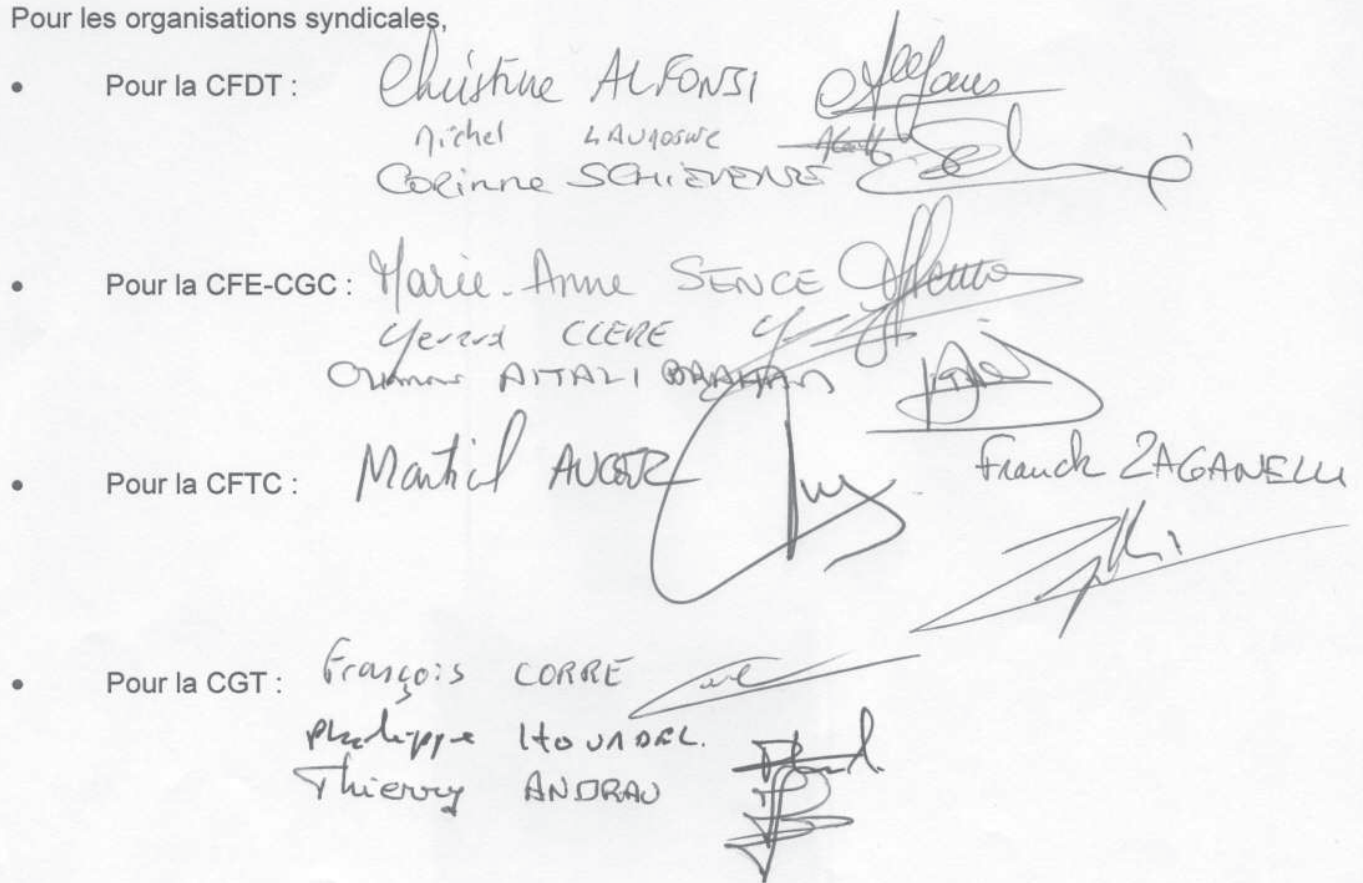 Pour les organisations syndicales,
• Pour la CFDT : Christine ALFONSI
Michel
Corinne
• Pour la CFE-CGC : Marie-Anne SENCE
Gerard CLERE
AITALI BRAHAM
• Pour la CFTC : Martial AUGER Franck ZAGANELLI
• Pour la CGT : François CORRE
Philippe HOURDEL.
Thierry ANDRAU